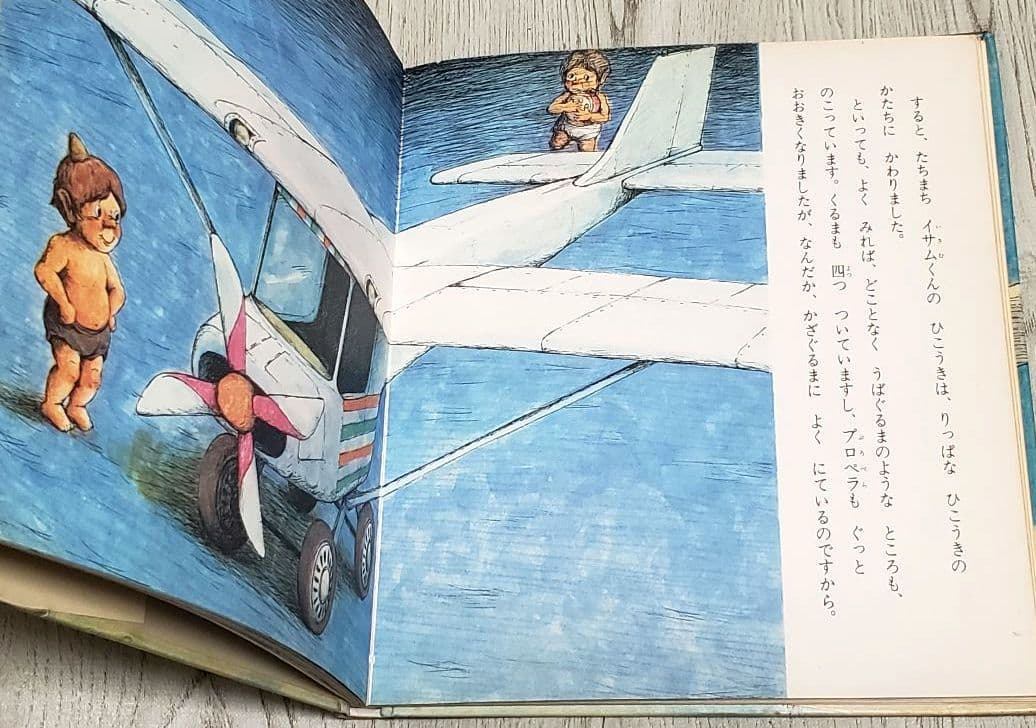 すると、たちまち イサムくんの ひこうきは、りっぱな ひこうきの
かたちに かわりました。
といっても、よく みれば、どことなく うばぐるまのような ところも、
のこっています。くるまも 四つ ついていますし、プロペラも ぐっと
おおきくなりましたが、なんだか、かざぐるまに よく にているのですから。